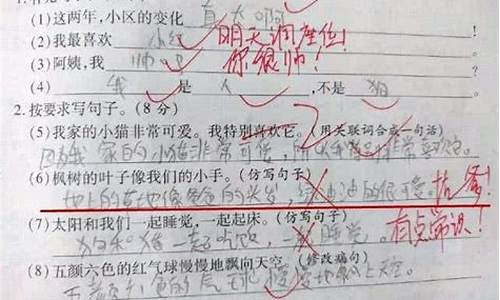 (1)这两年,小区的变化 真大啊
(2)我最喜欢 小红 明天调座位!
(3)阿姨,我 帅吧 你很帅!
(4) 我 是 人 ,不是 狗
2.按要求写句子。(8分)
(5)我家的小猫非常可爱。我特别喜欢它。(用关联词合成一句话)
因为我家的小猫非常可爱,所以我特别非常喜欢它。
(6)枫树的叶子像我们的小手。(仿写句子)
地上的草地像爸爸的头发,绿油油的很可爱。 抗爹!
(7)太阳和我们一起睡觉,一起起床。(仿写句子)
狗和猪一起吃饭,一起睡觉。 有点常识!
(8)五颜六色的红气球慢慢地飘向天空。(修改病句)
五颜六色的气球慢慢地飘上天空。